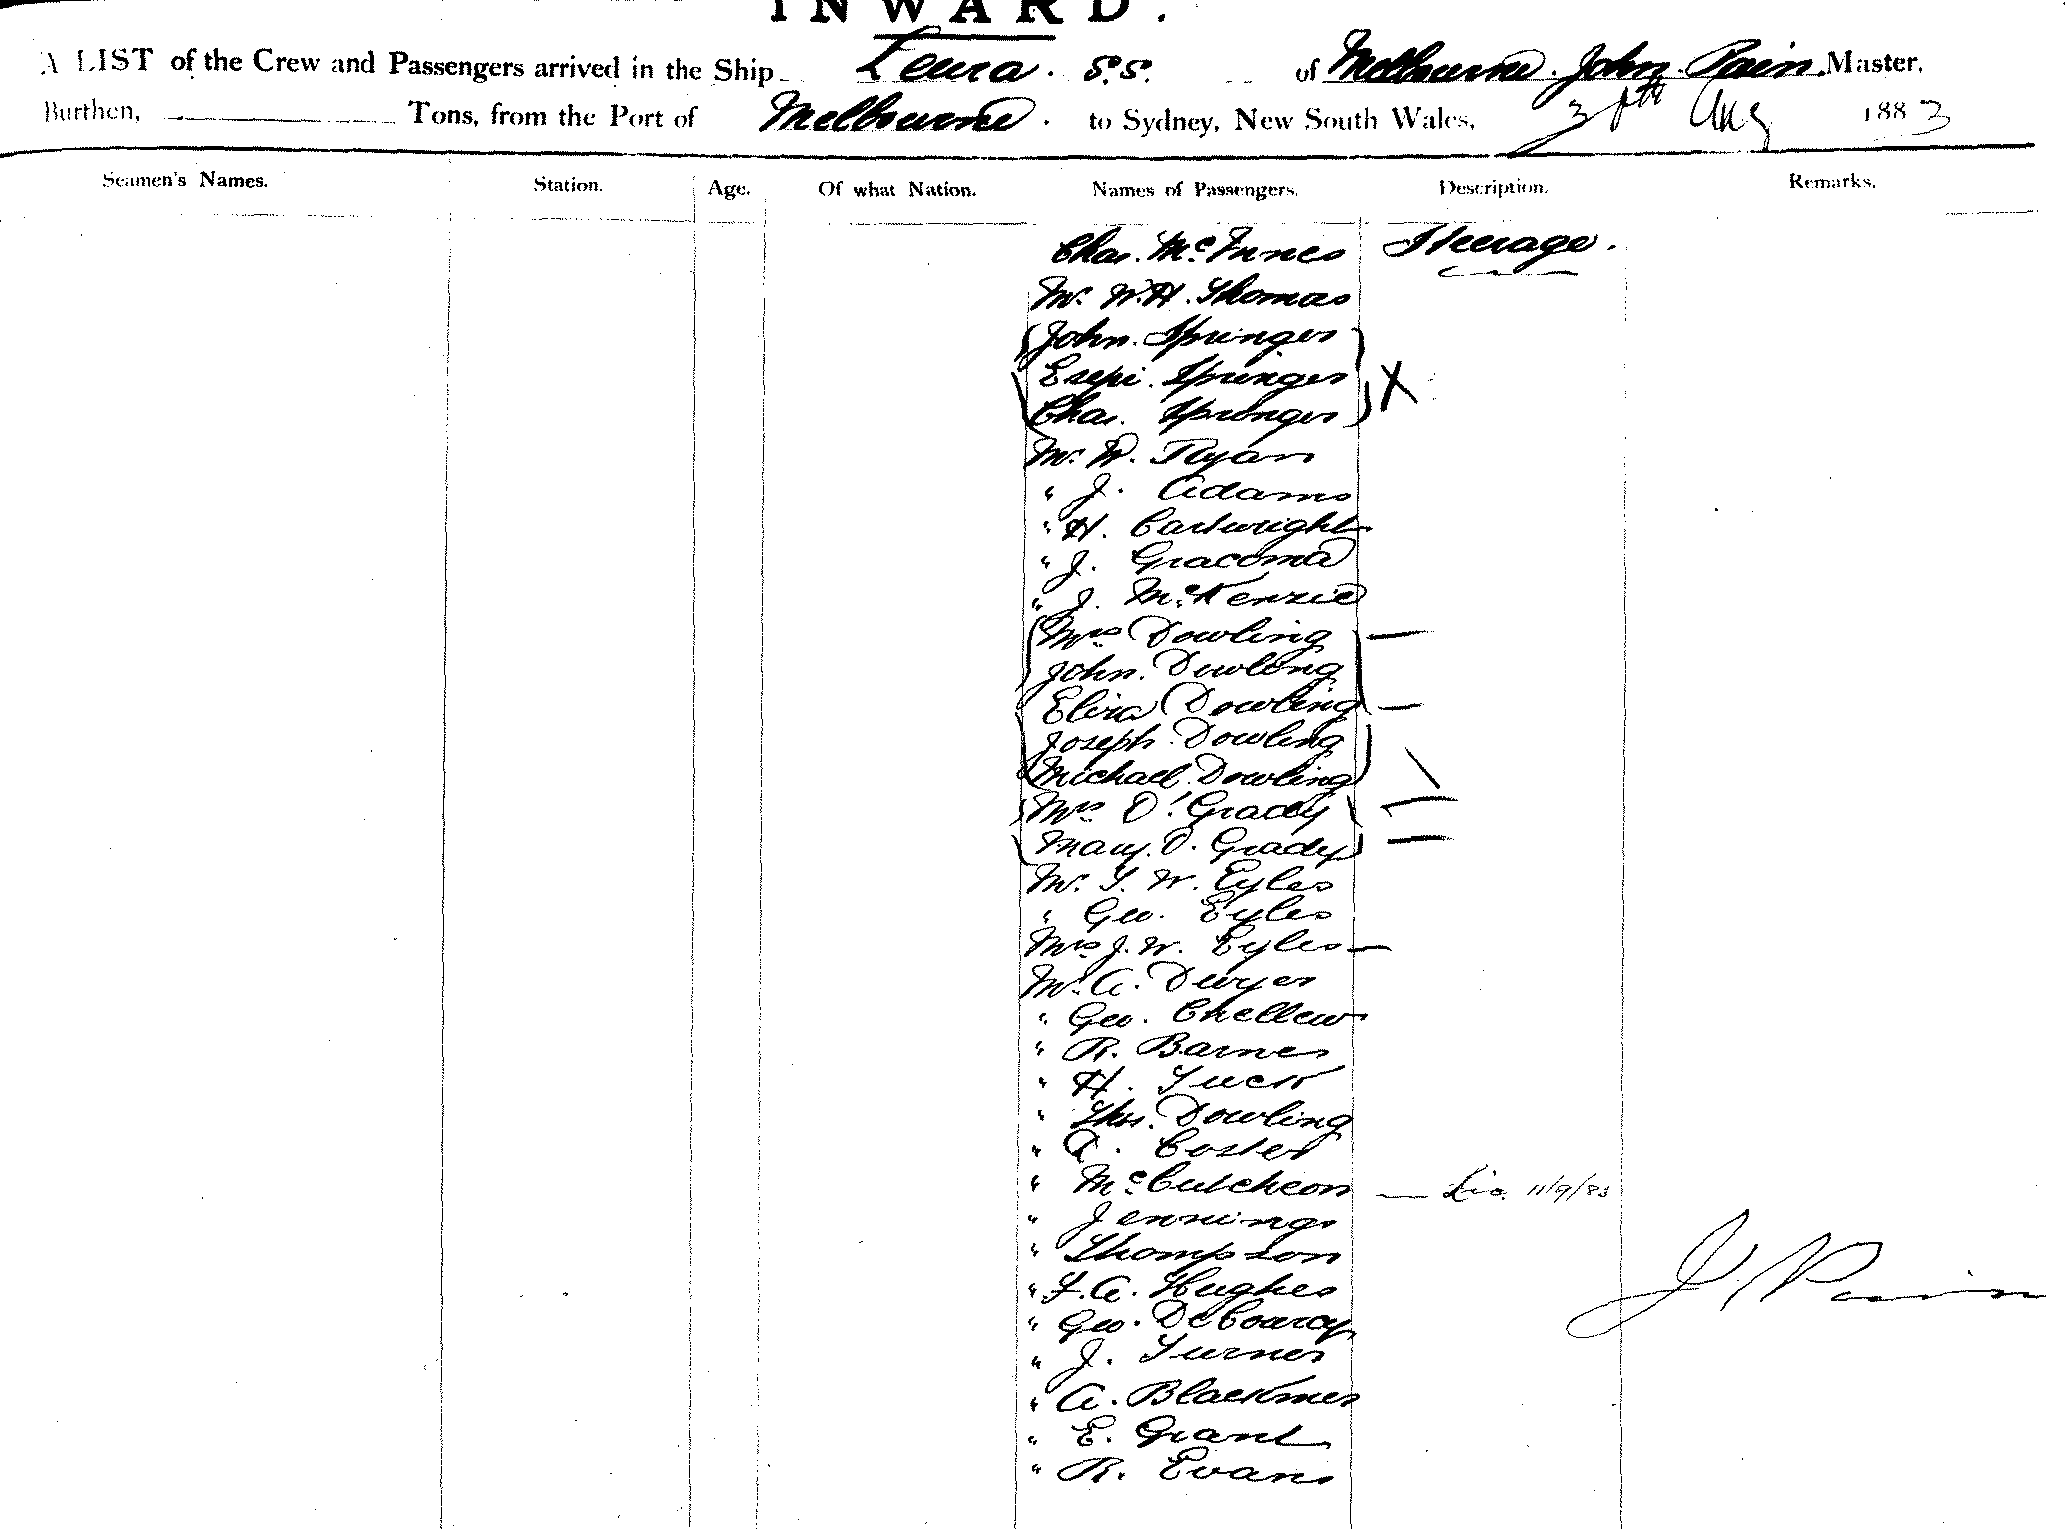 INWARD.
A LIST of the Crew and Passengers arrived in the Ship Leura. S.S. of Melbourne. John Pain. Master,
Burthen, Tons, from the Port of Melbourne. to Sydney, New South Wales, 30th Aug 1883
Seamen's Names. Station. Age. Of what Nation. Names of Passengers. Description. Remarks.
Chas. McInnes Steerage.
Mr. W.H. Thomas
John. Springer
Springer X
Chas. Springer
Mr. W. Ryan
" J. Adams
" H. Cartwright
" J. Giacoma
" J. McKenzie
Mrs Dowling —
John. Dowling
Eliza Dowling —
Joseph. Dowling
Michael. Dowling
Mrs O'Grady
Mary. O. Grady
Mr. T. W. Eyles
" Geo. Eyles
Mrs J. W. Eyles —
Mr. A. Dwyer
" Geo. Chellew
" R. Barnes
" H. Tuck
" Thos. Dowling
" A. Coster
" McCutcheon — Lic. 11/9/83
" Jennings
" Thompson
" F. A. Hughes
" Geo. DeCourcy
" J. Turner
" A. Blackmer
" E. Grant
" R. Evans
J. Pain